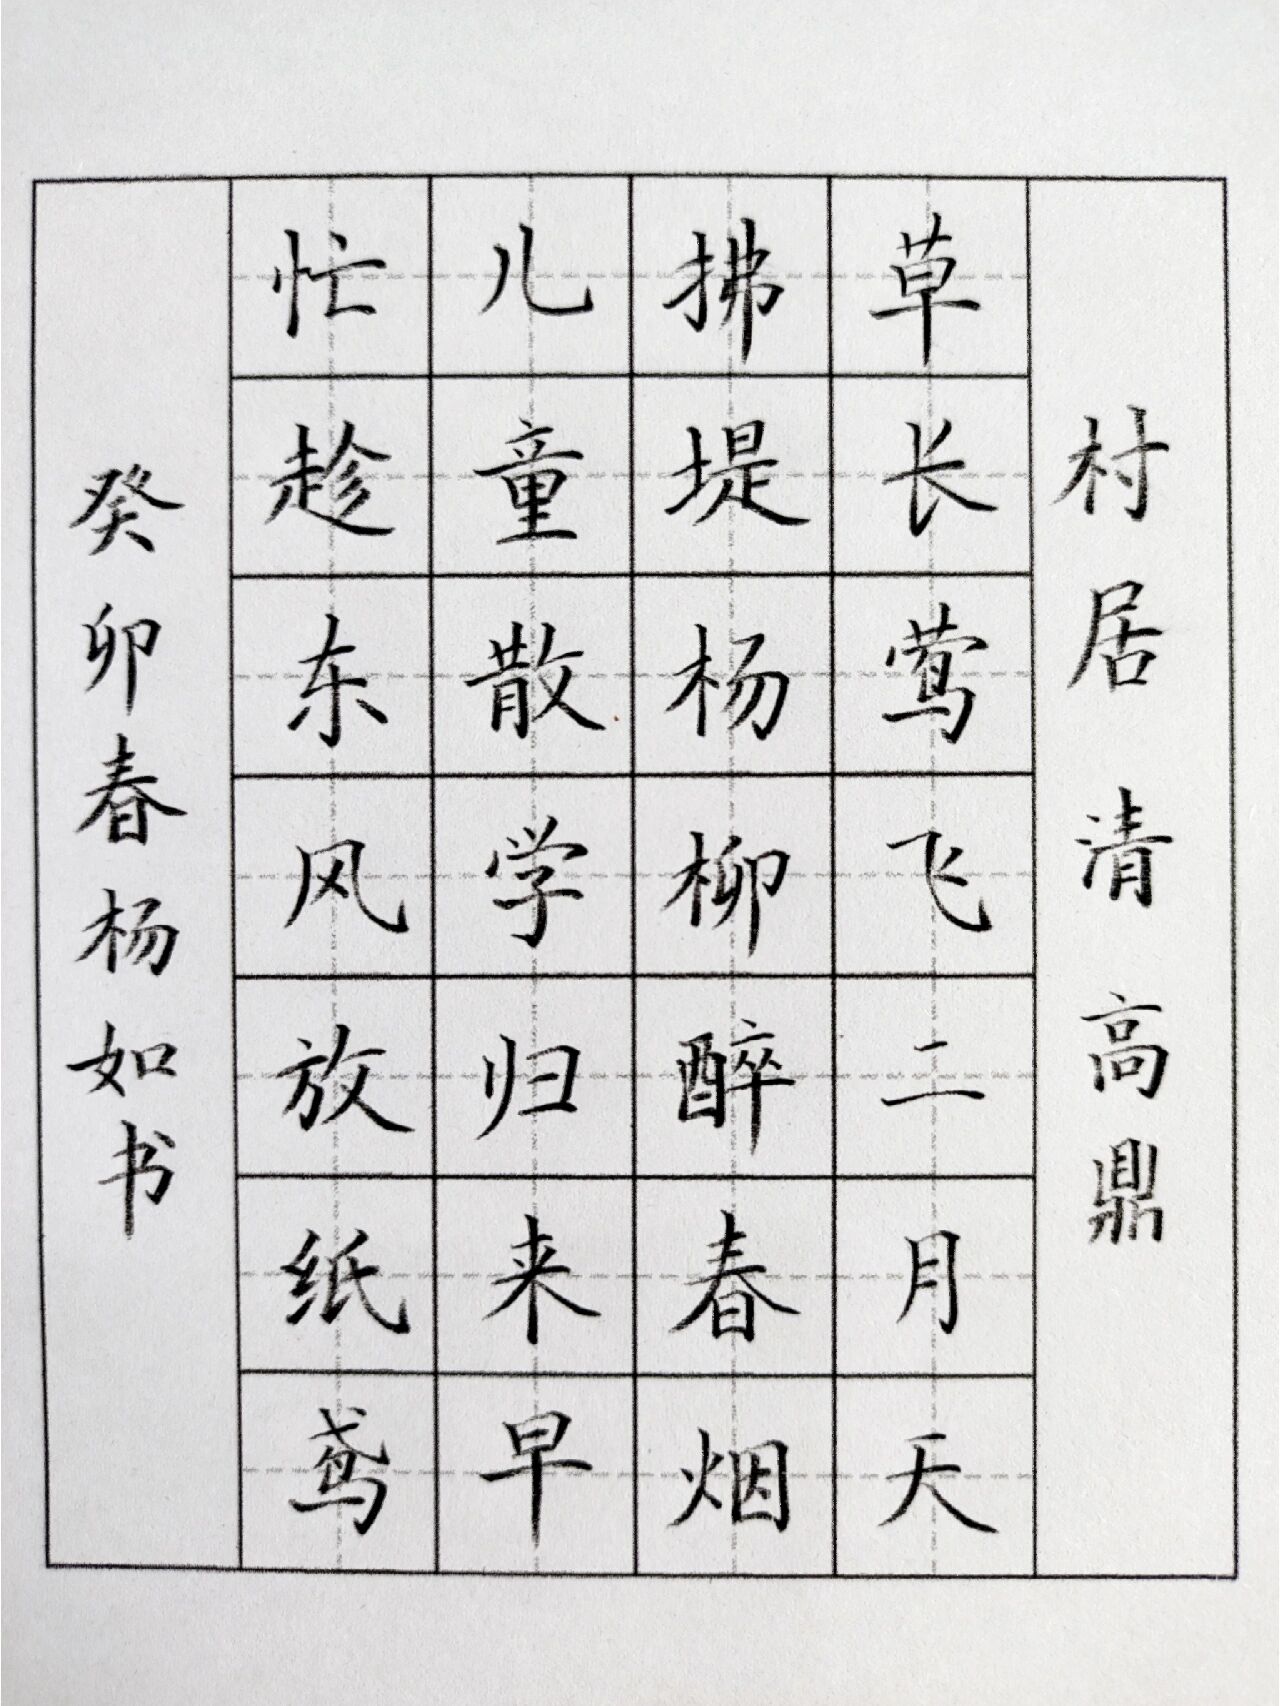 村居 清 高鼎
草长莺飞二月天
拂堤杨柳醉春烟
儿童散学归来早
忙趁东风放纸鸢
癸卯春杨如书